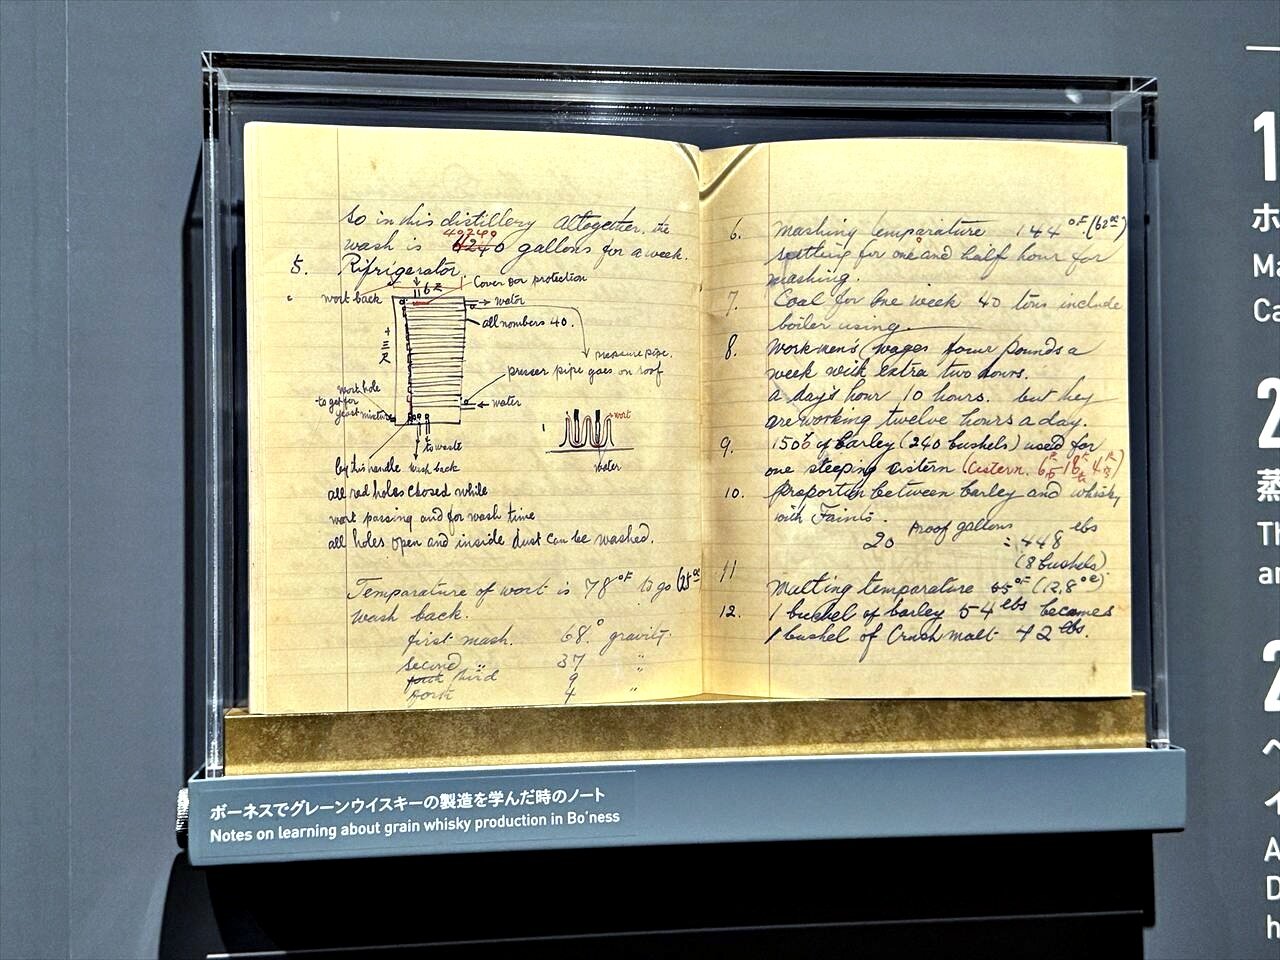 so in this distillery altogether, the
49249
wash is 6240 gallons for a week.
5. Rifrigerator
Cover for protection
wort back
water
all numbers 40.
十三尺
measure pipe.
presser pipe goes on roof
wort hole
to get for
yeast mixture
water
wort
water
to waste
by this handle wash back
all red holes closed while
wort passing and for wash time
all holes open and inside dust can be washed.
Temparature of wort is 78°F to go
wash back.
first mash. 68.° gravity.
second 〃 37 〃
third 9
forth 4 〃
6. Mashing temparature 144°F (62°c)
settling for one and half hour for
mashing.
7. Coal for one week 40 tons include
boiler using.
8. Workmen's wages four pounds a
week with extra two hours.
a day's hour 10 hours. but they
are working twelve hours a day.
9. of barley (240 bushels) used for
one steeping cistern (cistern.
10. proportion between barley and whisky
with Faints.
20 Proof gallons = 448 lbs
(8 bushels)
11
Malting temparature 55°F (12.8°c)
12. 1 bushel of barley 54 lbs becomes
1 bushel of Crush malt 42 lbs.
ボーネスでグレーンウイスキーの製造を学んだ時のノート
Notes on learning about grain whisky production in Bo'ness
1
ホ
Ma
Ca
2
蒸
Th
an
2
A
D
h